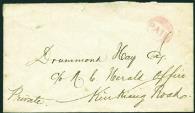 PAID
Drummond Hay Esq
c/o N. C. Herald Office
Private. Kiukiang Road.